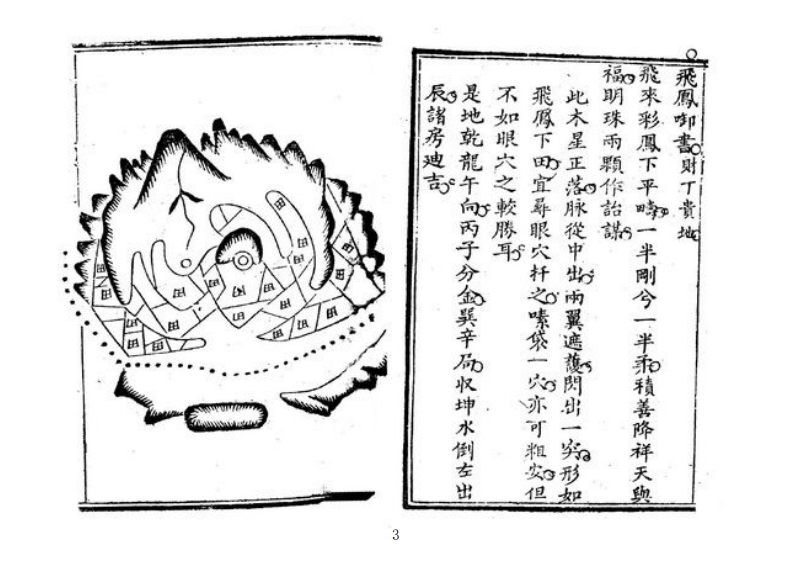 飛鳳啣書財丁貴地
飛來彩鳳下平疇一半剛兮一半柔積善降祥天與
福明珠兩顆作詒謀
此木星正落脉從中出兩翼遮護閃出一穴形如
飛鳳下田宜尋眼穴扦之嗉袋一穴亦可粗安但
不如眼穴之較勝耳
是地乾龍午向丙子分金巽辛局収坤水倒左出
辰諸房迪吉
田 田 田 田 田 田 田 田 田 田 田 田 田 田 田 田
3